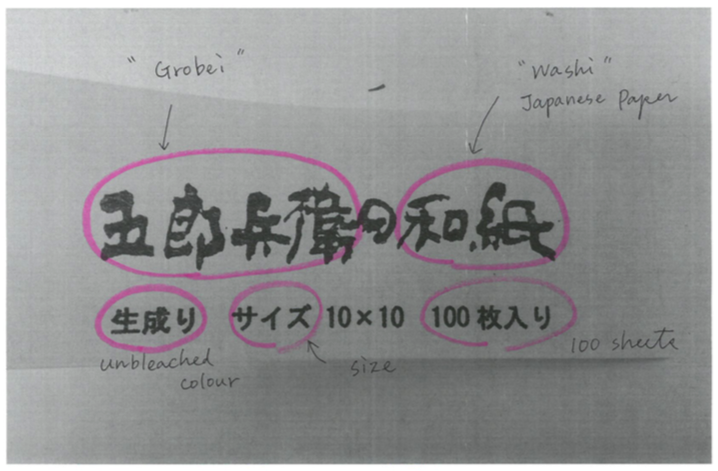 "Grobei"
"Washi"
Japanese Paper
五郎兵衛の和紙
生成り サイズ 10×10 100枚入り
unbleached colour
size
100 sheets